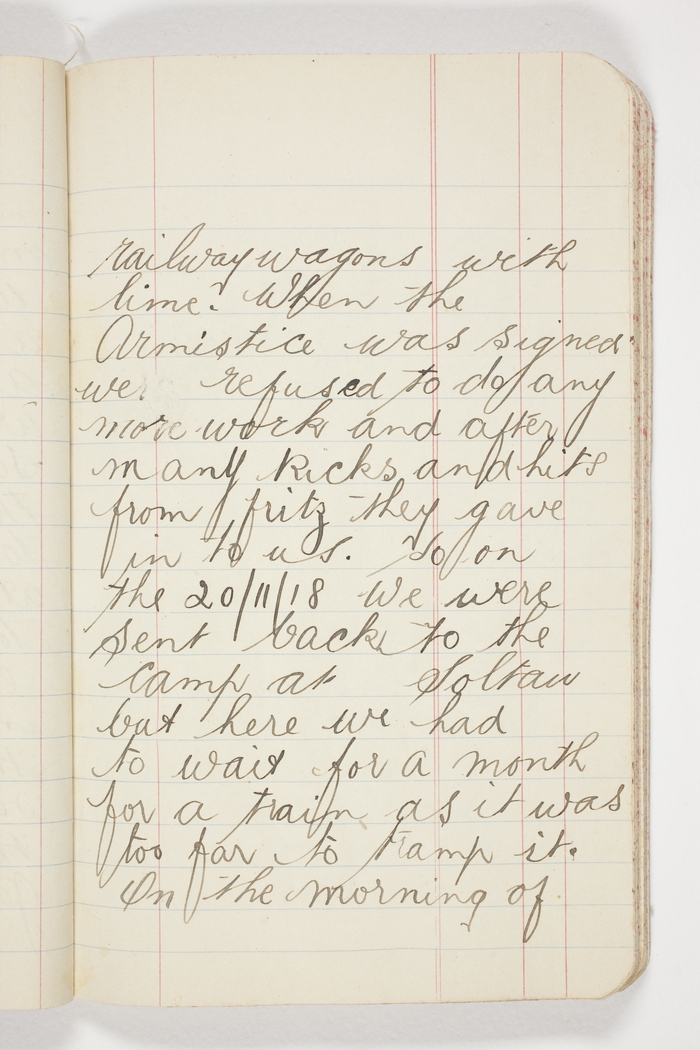 railway wagons with
lime. When the
Armistice was signed
we refused to do any
more work and after
many kicks and hits
from fritz they gave
in to us. So on
the 20/11/18 We were
sent back to the
Camp at Soltau
but here we had
to wait for a month
for a train as it was
too far to tramp it.
On the morning of